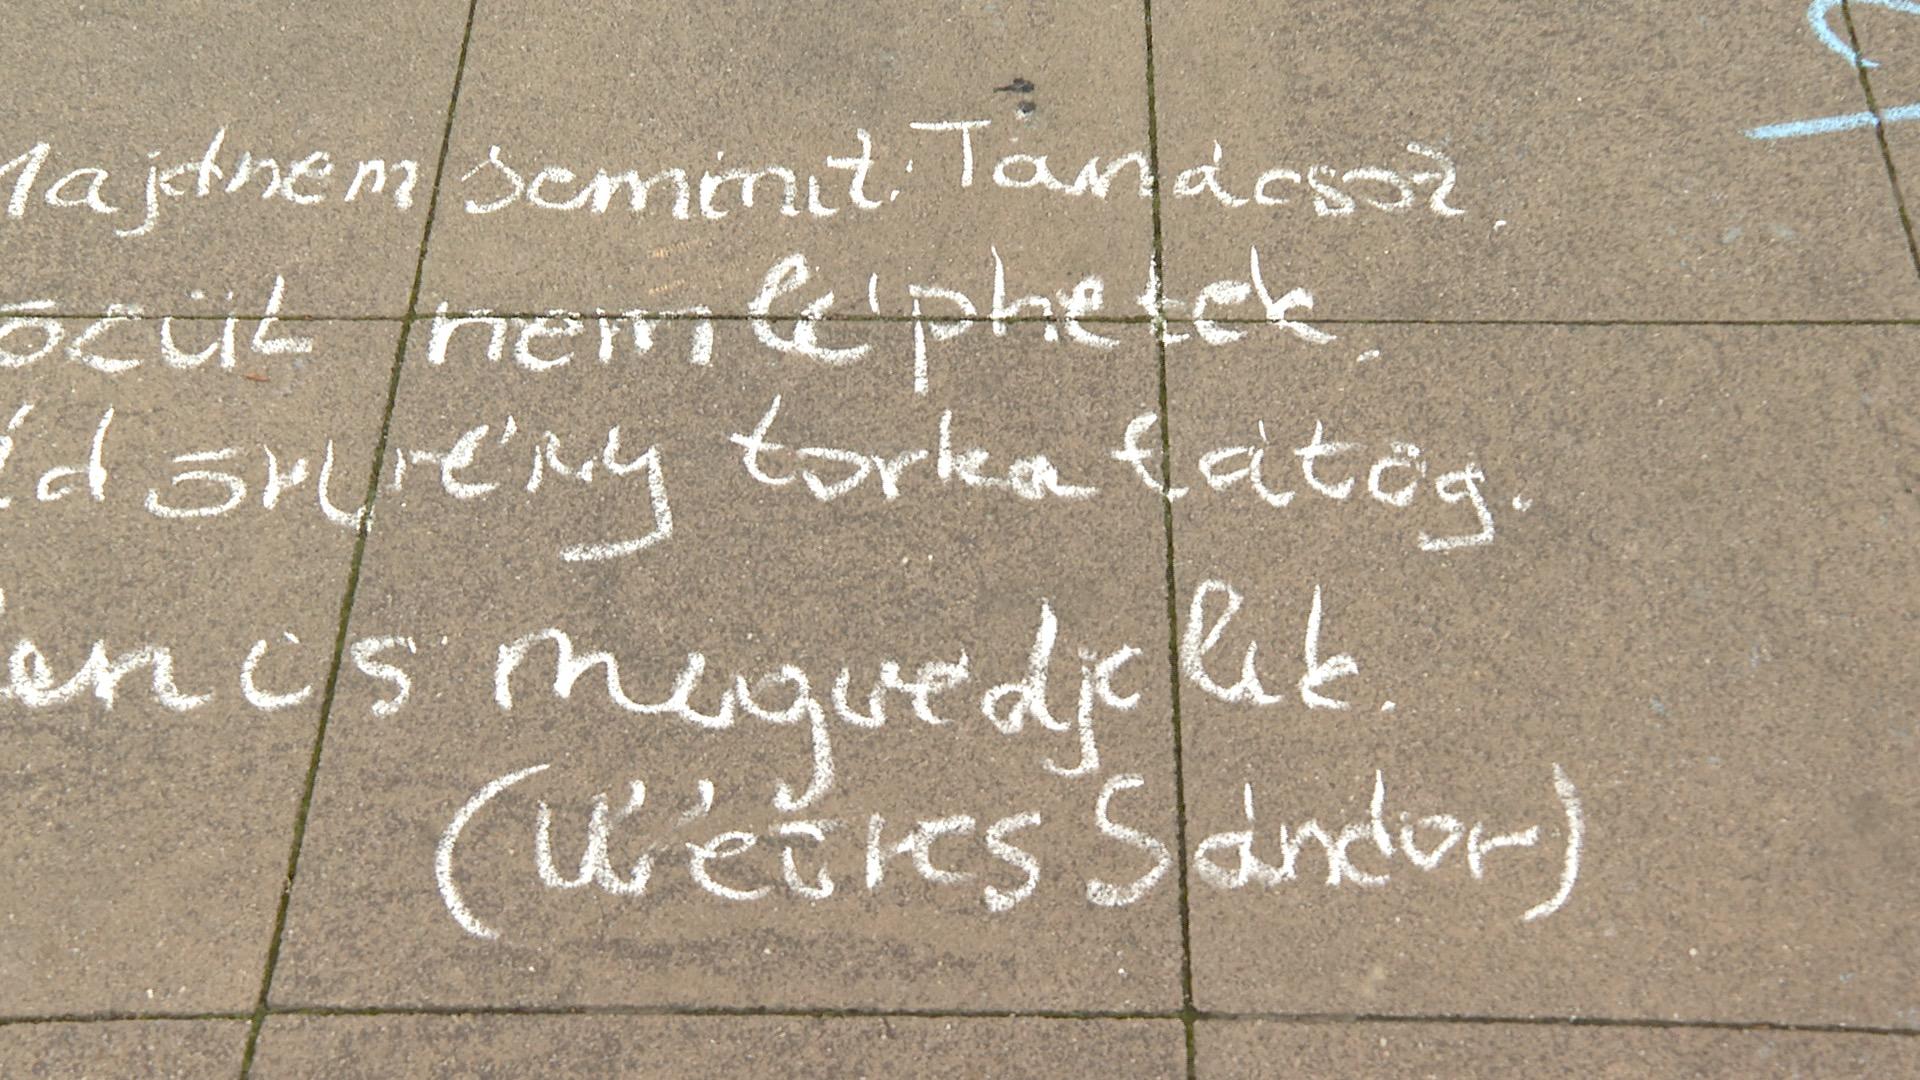 Majdnem semmit. Tanácsot,
nem léphetek,
örvény torka tátog.
is megvédjelek.
(Weöres Sándor)